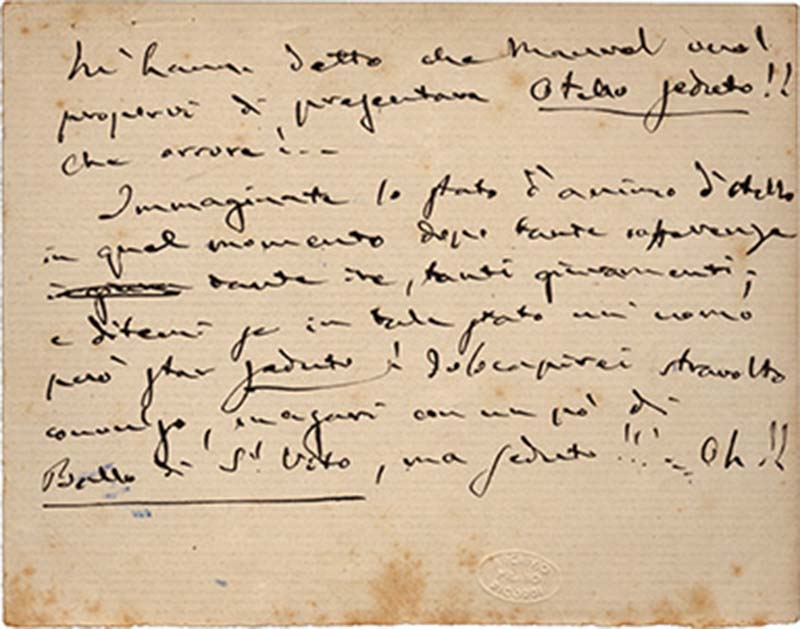 M'hanno detto che Maurel vuol
proporvi di presentare Otello seduto!!
Che orrore!...
Immaginate lo stato d'animo d'Otello
in qual momento dopo tante sofferenze
tante ire, tanti giuramenti;
e ditemi se in tale stato un uomo
può star seduto! Lo capirei stravolto
convulso, magari con un pò di
Ballo di S! Vito, ma seduto!!!.. Oh!!